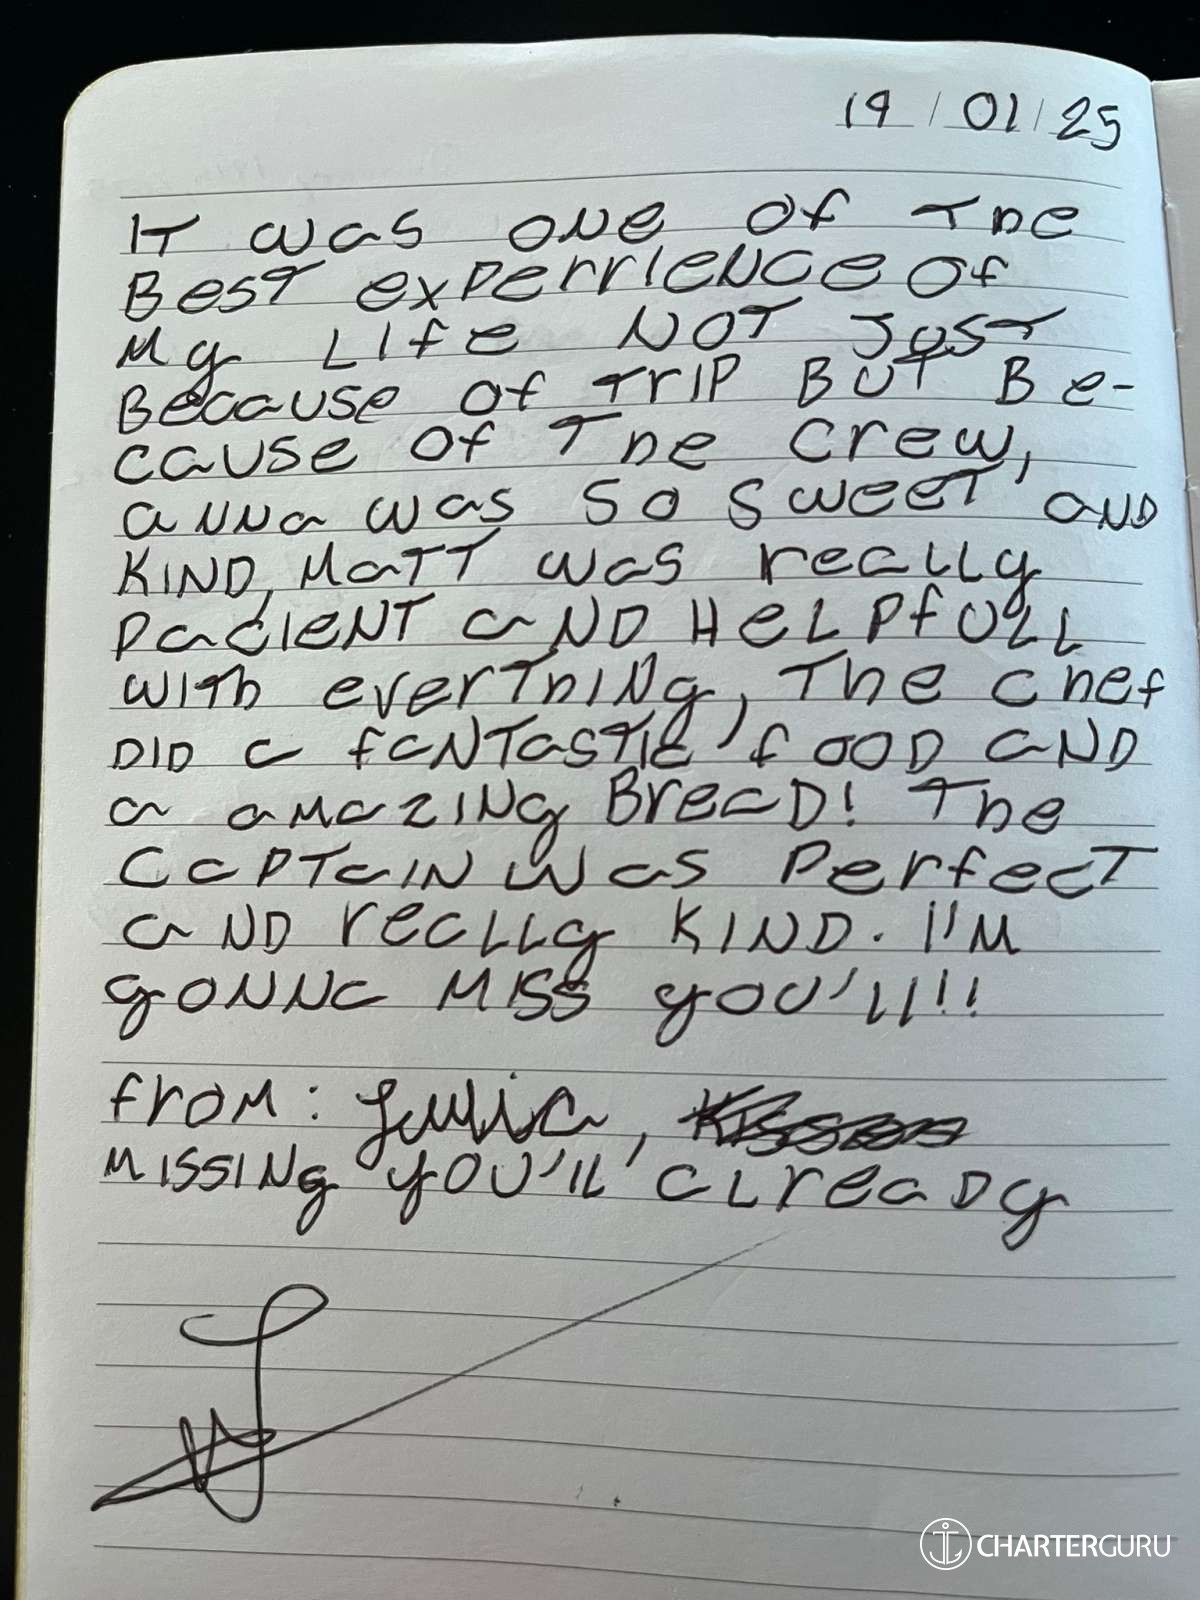 19/01/25
IT was one of The
Best experrience of
My Life NOT Just
Because of Trip BUT Be-
cause of The crew,
anna was so sweet and
KIND, Matt was really
pacient and Helpfull
with everthing, The chef
DID a fantastic food and
a amazing Bread! The
captain was perfect
and really KIND. I'm
gonna miss you'll!!
From: Julia,
missing you'll already
CHARTERGURU